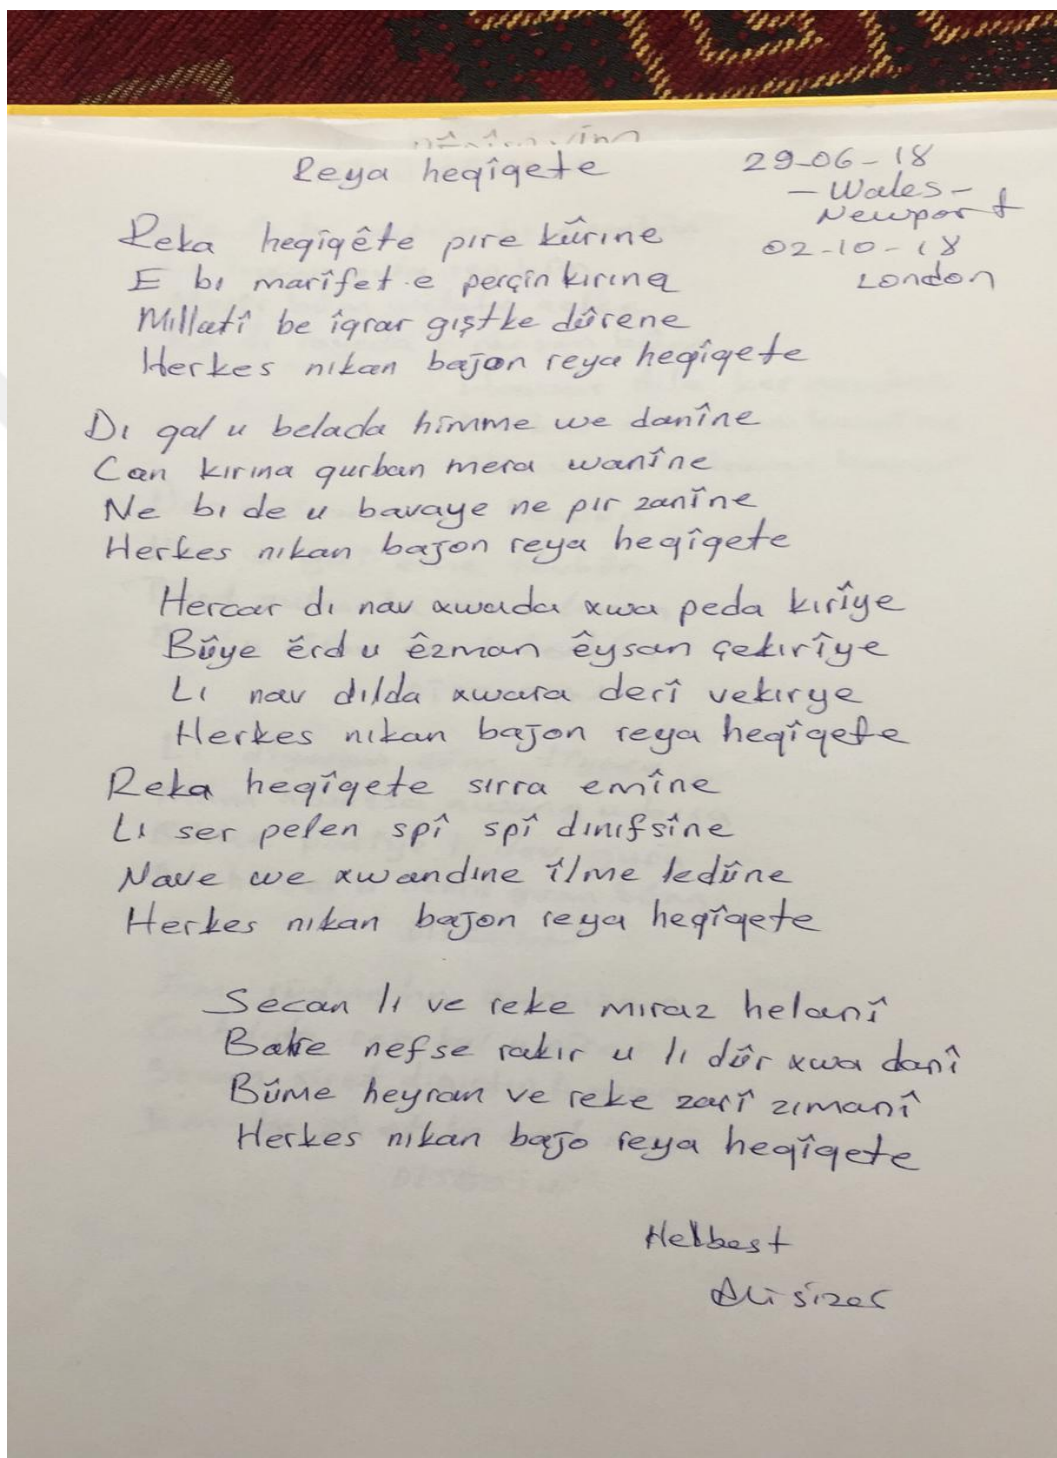 Reya heqîqete
29-06-18
- Wales -
Newport
02-10-18
London
Reka heqîqête pire kûrine
E bı marîfet e perçin kırına
Mıllatî be îqrar gıştke dûrene
Herkes nıkan bajon reya heqîqete
Dı qal u belada himme we danîne
Can kırına qurban mera wanîne
Ne bı de u bavaye ne pır zanîne
Herkes nıkan bajon reya heqîqete
Hercar dı nav xwada xwa peda kırîye
Bûye êrd u êzman êysan çekırîye
Lı nav dılda xwara derî vekırye
Herkes nıkan bajon reya heqîqete
Reka heqîqete sırra emîne
Lı ser pelen spî spî dınıfsîne
Nave we xwandıne îlme ledûne
Herkes nıkan bajon reya heqîqete
Secan lı ve reke mıraz helanî
nefse rakır u lı dûr xwa danî
Bûme heyran ve reke zarî zımanî
Herkes nıkan bajo reya heqîqete
Helbest
Ali sizer